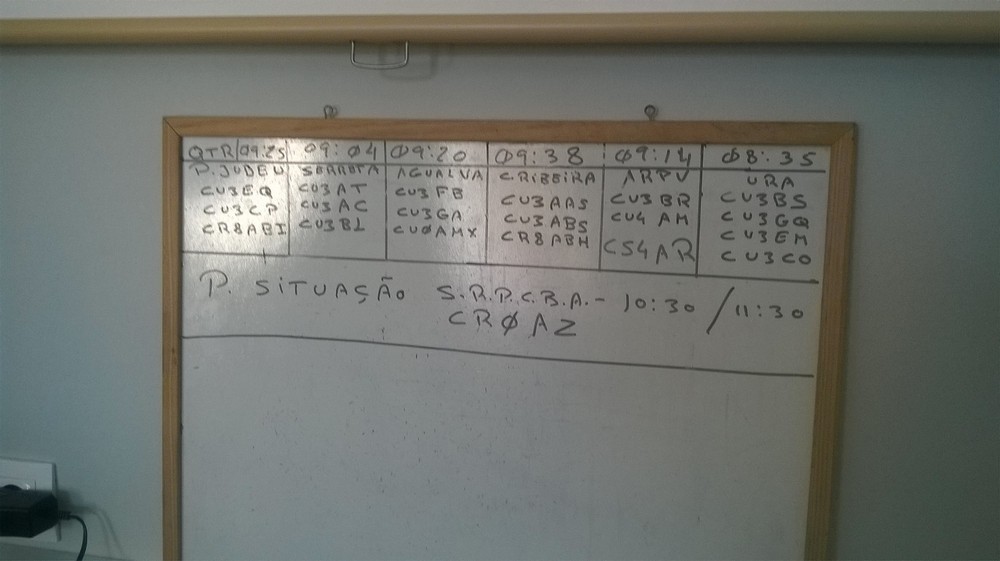 QTR 09:25 09:04 09:20 09:38 09:14 08:35
P. JUDEU SERRETA AGUALVA C.RIBEIRA ARPV URA
CU3EQ CU3AT CU3FB CU3AAS CU3BR CU3BS
CU3CP CU3AC CU3GA CU3ABS CU4AM CU3GQ
CR8ABI CU3BL CU0AMX CR8ABH CS4AR CU3EM
CU3CO
P. SITUAÇÃO S.R.P.C.B.A. - 10:30 / 11:30
CRØAZ